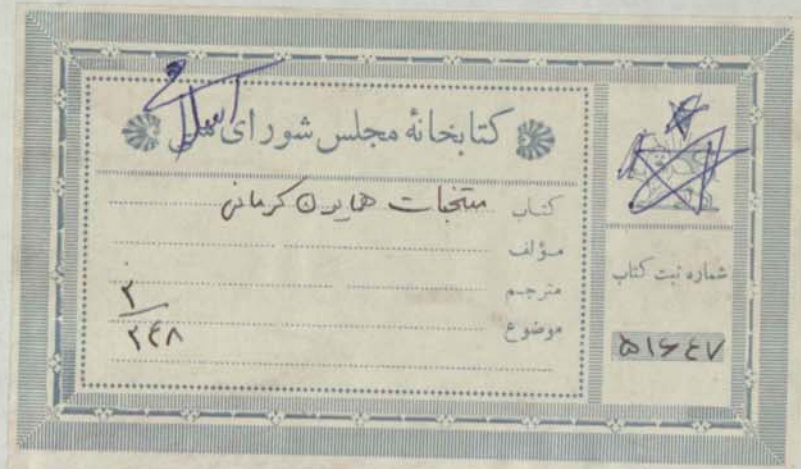 کتابخانهٔ مجلس شورای اسلامی
کتاب منتخبات همایون کرمانی
مؤلف
مترجم
موضوع
۲
۲۴۸
شماره ثبت کتاب
۵۱۶۴۷